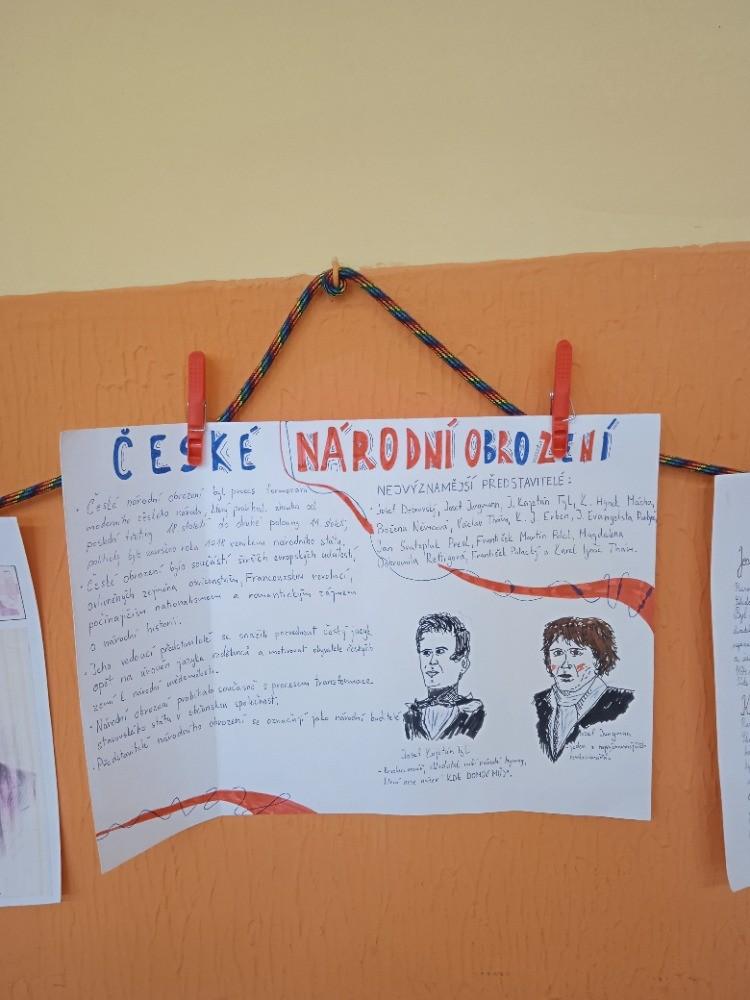 ČESKÉ NÁRODNÍ OBROZENÍ
• České národní obrození byl proces formování
moderního českého národa, který probíhal zhruba od
poslední třetiny 18. století do druhé poloviny 19. století,
politicky byl završen roku 1918 vznikem národního státu.
• České obrození bylo součástí širších evropských událostí,
ovlivněných zejména osvícenstvím, Francouzskou revolucí,
počínajícím nationalismem a romantickým zájmem
o národní historii.
Jeho vedoucí představitelé se snažili pozvednout český jazyk
opět na úroveň jazyka vzdělanců a motivovat obyvatele českých
zemí k národní uvědomělosti.
• Národní obrození probíhalo současně s procesem transformace
stavovského státu v občanskou společnost.
• Představitelé národního obrození se označují jako národní buditelé
NEJVÝZNAMĚJŠÍ PŘEDSTAVITELÉ:
• Josef Dobrovský, Josef Jungmann, J. Kajetán Tyl, K. Hynek Mácha,
Božena Němcová, Václav Thám, K. J. Erben, J. Evangelista Purkyně,
Jan Svatopluk Presl, František Martin Pelcl, Magdalena
Dobromila Rettigová, František Palacký a Karel Ignác Thám.
Josef Kajetán Tyl
- skladatel naší národní hymny,
která nese název "KDE DOMOV MŮJ".
Josef Jungman
- jeden z nejvýznamnějších